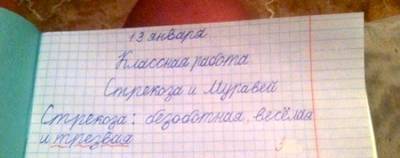 13 января
Классная работа
Стрекоза и Муравей
Стрекоза: беззоботная, весёлая
и трезвая